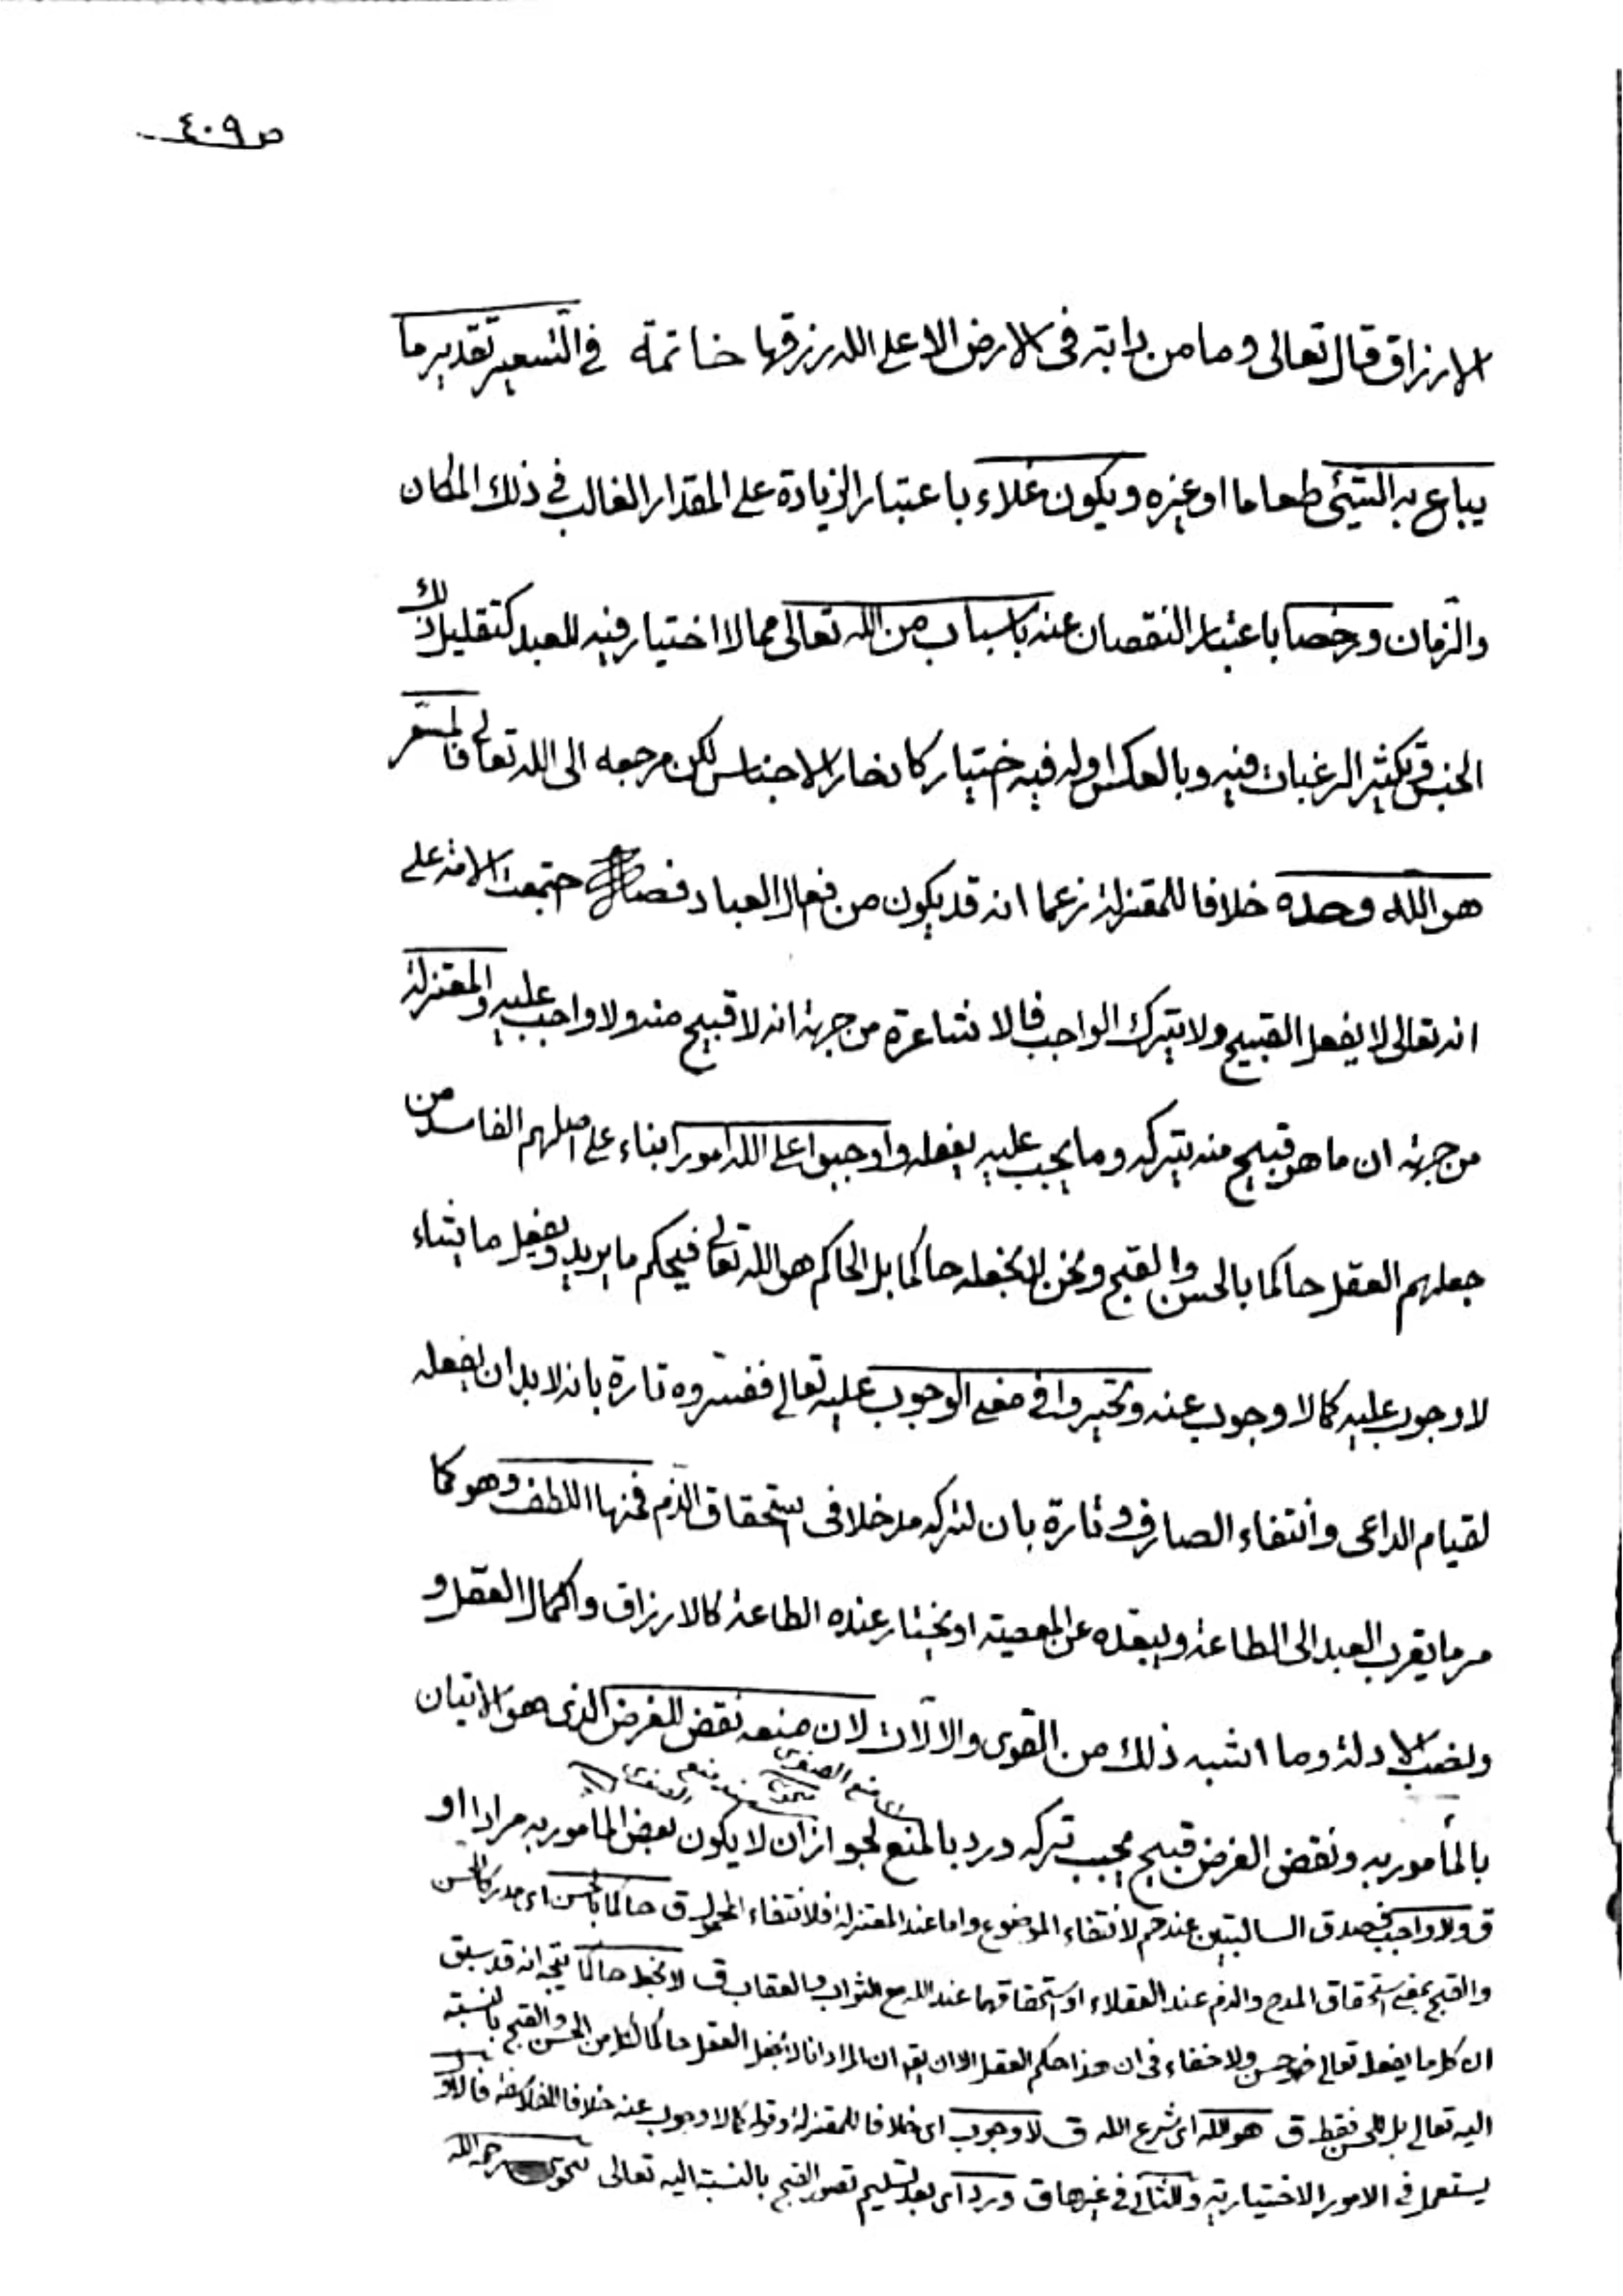 ص ٤٠٩
الارزاق قال تعالى وما من دابة فى الارض الا على الله رزقها خاتمة فى التسعير تقدير ما
يباع به الشيئ طعاما او غيره ويكون غلاء باعتبار الزيادة على المقدار الغالب فى ذلك المكان
والزمان ورخصا باعتبار النقصان عنه باسباب من الله تعالى مما لا اختيار فيه للعبد كتقليل ذلك
الجنس وتكثير الرغبات فيه وبالعكس اوله فيه اختيار كاخار الاجناس لكن مرجعه الى الله تعالى فالمسعر
هو الله وحده خلافا للمعتزلة زعما انه قد يكون من فعال العباد فصل اجتمعت الامة على
انه تعالى لا يفعل القبيح ولا يترك الواجب فالاشاعرة من جهة انه لا قبيح منه ولا واجب عليه والمعتزلة
من جهة ان ما هو قبيح منه يتركه وما يجب عليه يفعله واوجبوا على الله امورا بناء على اصلهم الفاسد من
جعلهم العقل حاكما بالحسن والقبح ونحن لا نجعله حاكما بل الحاكم هو الله تعالى فيحكم ما يريد ويفعل ما يشاء
لا وجوب عليه كما لا وجوب عنه وتحيروا فى معنى الوجوب عليه تعالى ففسروه تارة بانه لا بد ان يفعله
لقيام الداعى وانتفاء الصارف وتارة بان لتركه مدخلا فى استحقاق الذم فمنها اللطف وهو كما
مر ما يقرب العبد الى الطاعة ويبعده عن المعصية او يختار عنده الطاعة كالارزاق واكمال العقل و
ونصب الادلة وما اشبه ذلك من القوى والالات لان منعه نقض للغرض الذى هو الاتيان
اى منع الصغرى
بالمأمور به ونقض الغرض قبيح يجب تركه ورد بالمنع لجواز ان لا يكون بعض المأمور به مرادا او
ق ولا واجب فصدق السالبتين عندهم لانتفاء الموضوع واما عند المعتزلة فلانتفاء المحمول ق حاكما بالحسن اى مدرك الحسن
والقبح بمعنى استحقاق المدح والذم عند العقلاء او استحقاقهما عند الله مع الثواب والعقاب ق لا نجعله حاكما يتجه انه قد سبق
ان كل ما يفعله تعالى فهو حسن ولا خفاء فى ان هذا حكم العقل الا ان يقه ان المراد انا لا نجعل العقل حاكما لكل من الحسن والقبح بالنسبة
اليه تعالى بل للحسن فقط ق هو الله اى شرع الله ق لا وجوب اى خلافا للمعتزلة وقوله كما لا وجوب عنه خلافا للفلاسفة فالاول
يستعمل فى الامور الاختيارية والثانى فى غيرها ق ورد اى بعد تسليم تصور القبح بالنسبة اليه تعالى رحمه الله